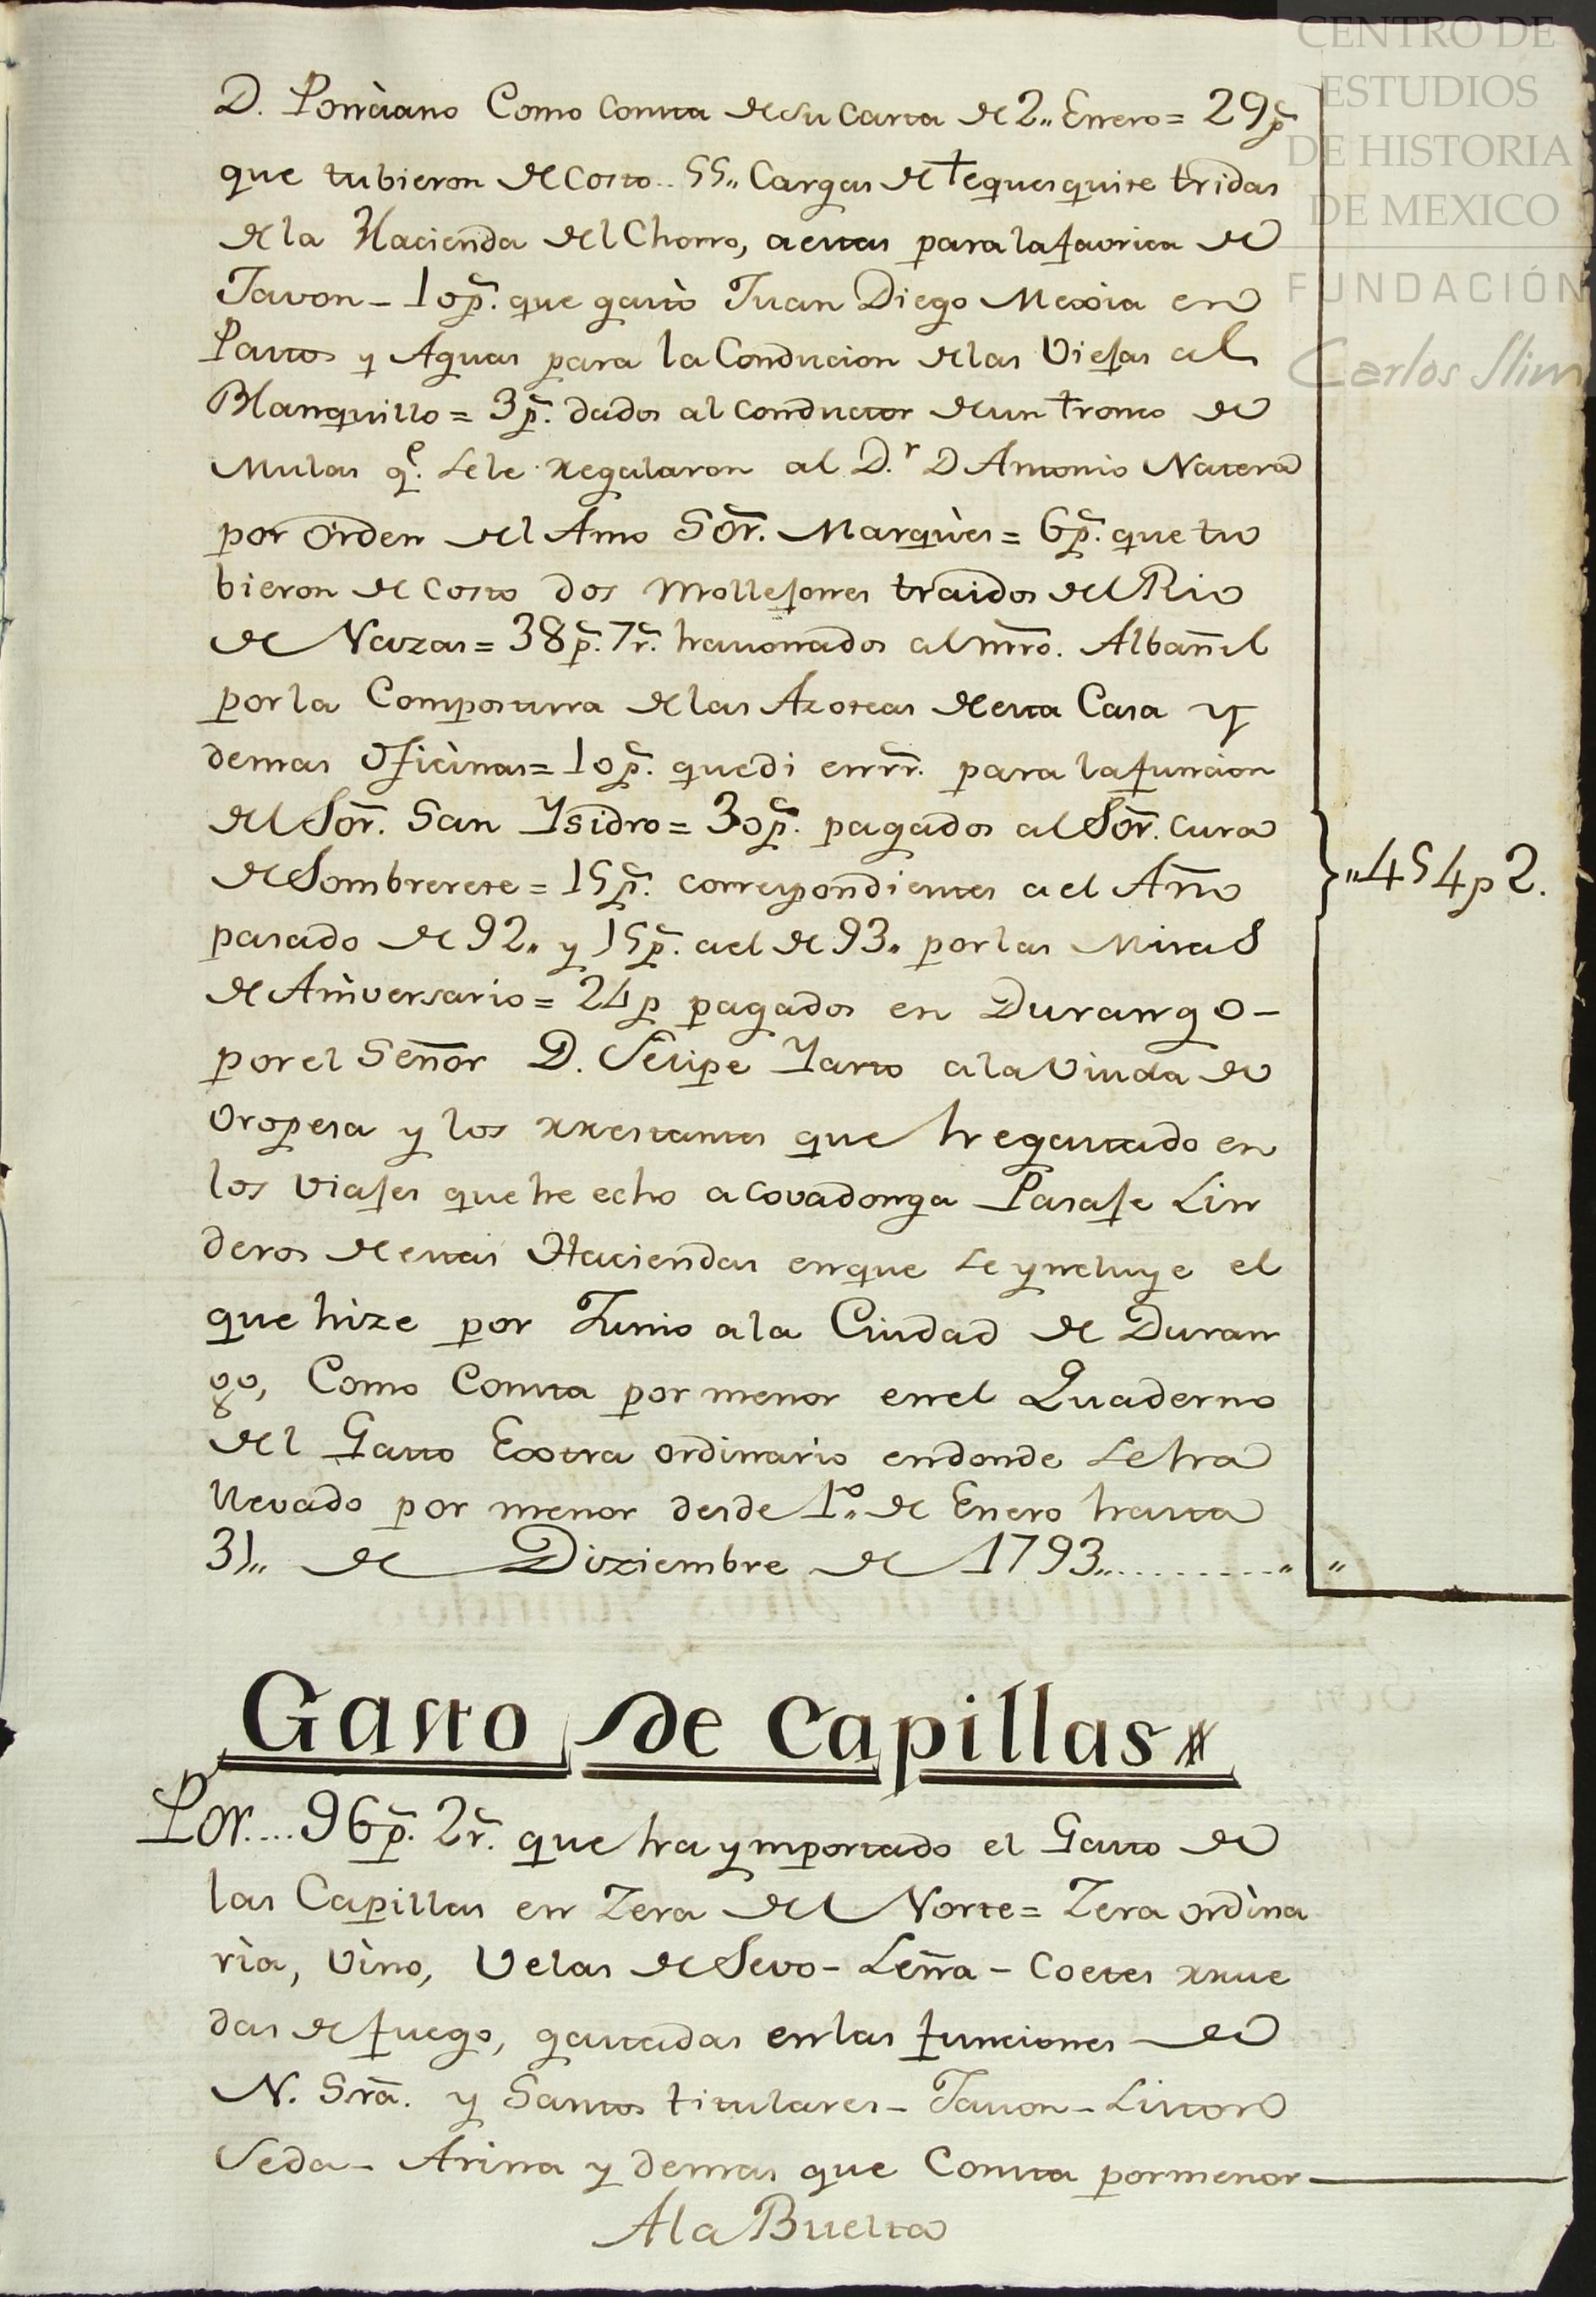 CENTRO DE
ESTUDIOS
DE HISTORIA
DE MEXICO
FUNDACIÓN
Carlos Slim
D. Ponciano Como Consta de su Carta de 2,, Enero = 29 p.
que tubieron de Costo.. 55,, Cargas de tequesquite tridas
de la Hacienda del Chorro, a estas para la favrica de
Javon - 10 p. que gastò Juan Diego Mexia en
Pastos y Aguas para la Conducion de las Viejas al
Blanquillo = 3 p. dados al conductor de un tronco de
Mulas q.e se le rregalaron al D.r D Antonio Natera
por orden del Amo Sōr. Marquès = 6 p. que tu
bieron de Costo dos Mollejones traidos del Rio
de Nazas = 38 p. 7 r. havonados al mrō. Albañil
por la Compostura de las Azoteas de esta Casa y
demas oficinas = 10 p. que di en rr. para la funcion
del Sōr. San Ysidro = 30 p. pagados al Sōr. Cura
de Sombrerete = 15 p. correspondientes a el Año
pasado de 92,, y 15 p. a el de 93,, por las Misas
de Aniversario = 24 p pagados en Durango -
por el Señor D. Felipe Yarto a la Viuda de
Oropesa y los rrestantes que he gastado en
los viajes que he echo a Covadonga Pasaje Lin
deros de estas Haciendas en que se yncluye el
que hize por Junio a la Ciudad de Duran
go, Como Consta por menor en el Quaderno
del Gasto Extra ordinario en donde se ha
llevado por menor desde 1.o de Enero hasta
31,, de Diziembre de 1793,,.......... ,, ,,
,,454 p 2.
Gasto de Capillas
Por.... 96 p. 2 r. que ha ymportado el Gasto de
las Capillas en Zera del Norte = Zera ordina
ria, Vino, Velas de Sevo - Leña - Coetes rrue
das de fuego, gastadas en las funciones de
N. Srā. y Santos titulares - Javon - Liston
Seda - Arina y demas que Consta por menor
A la Buelta